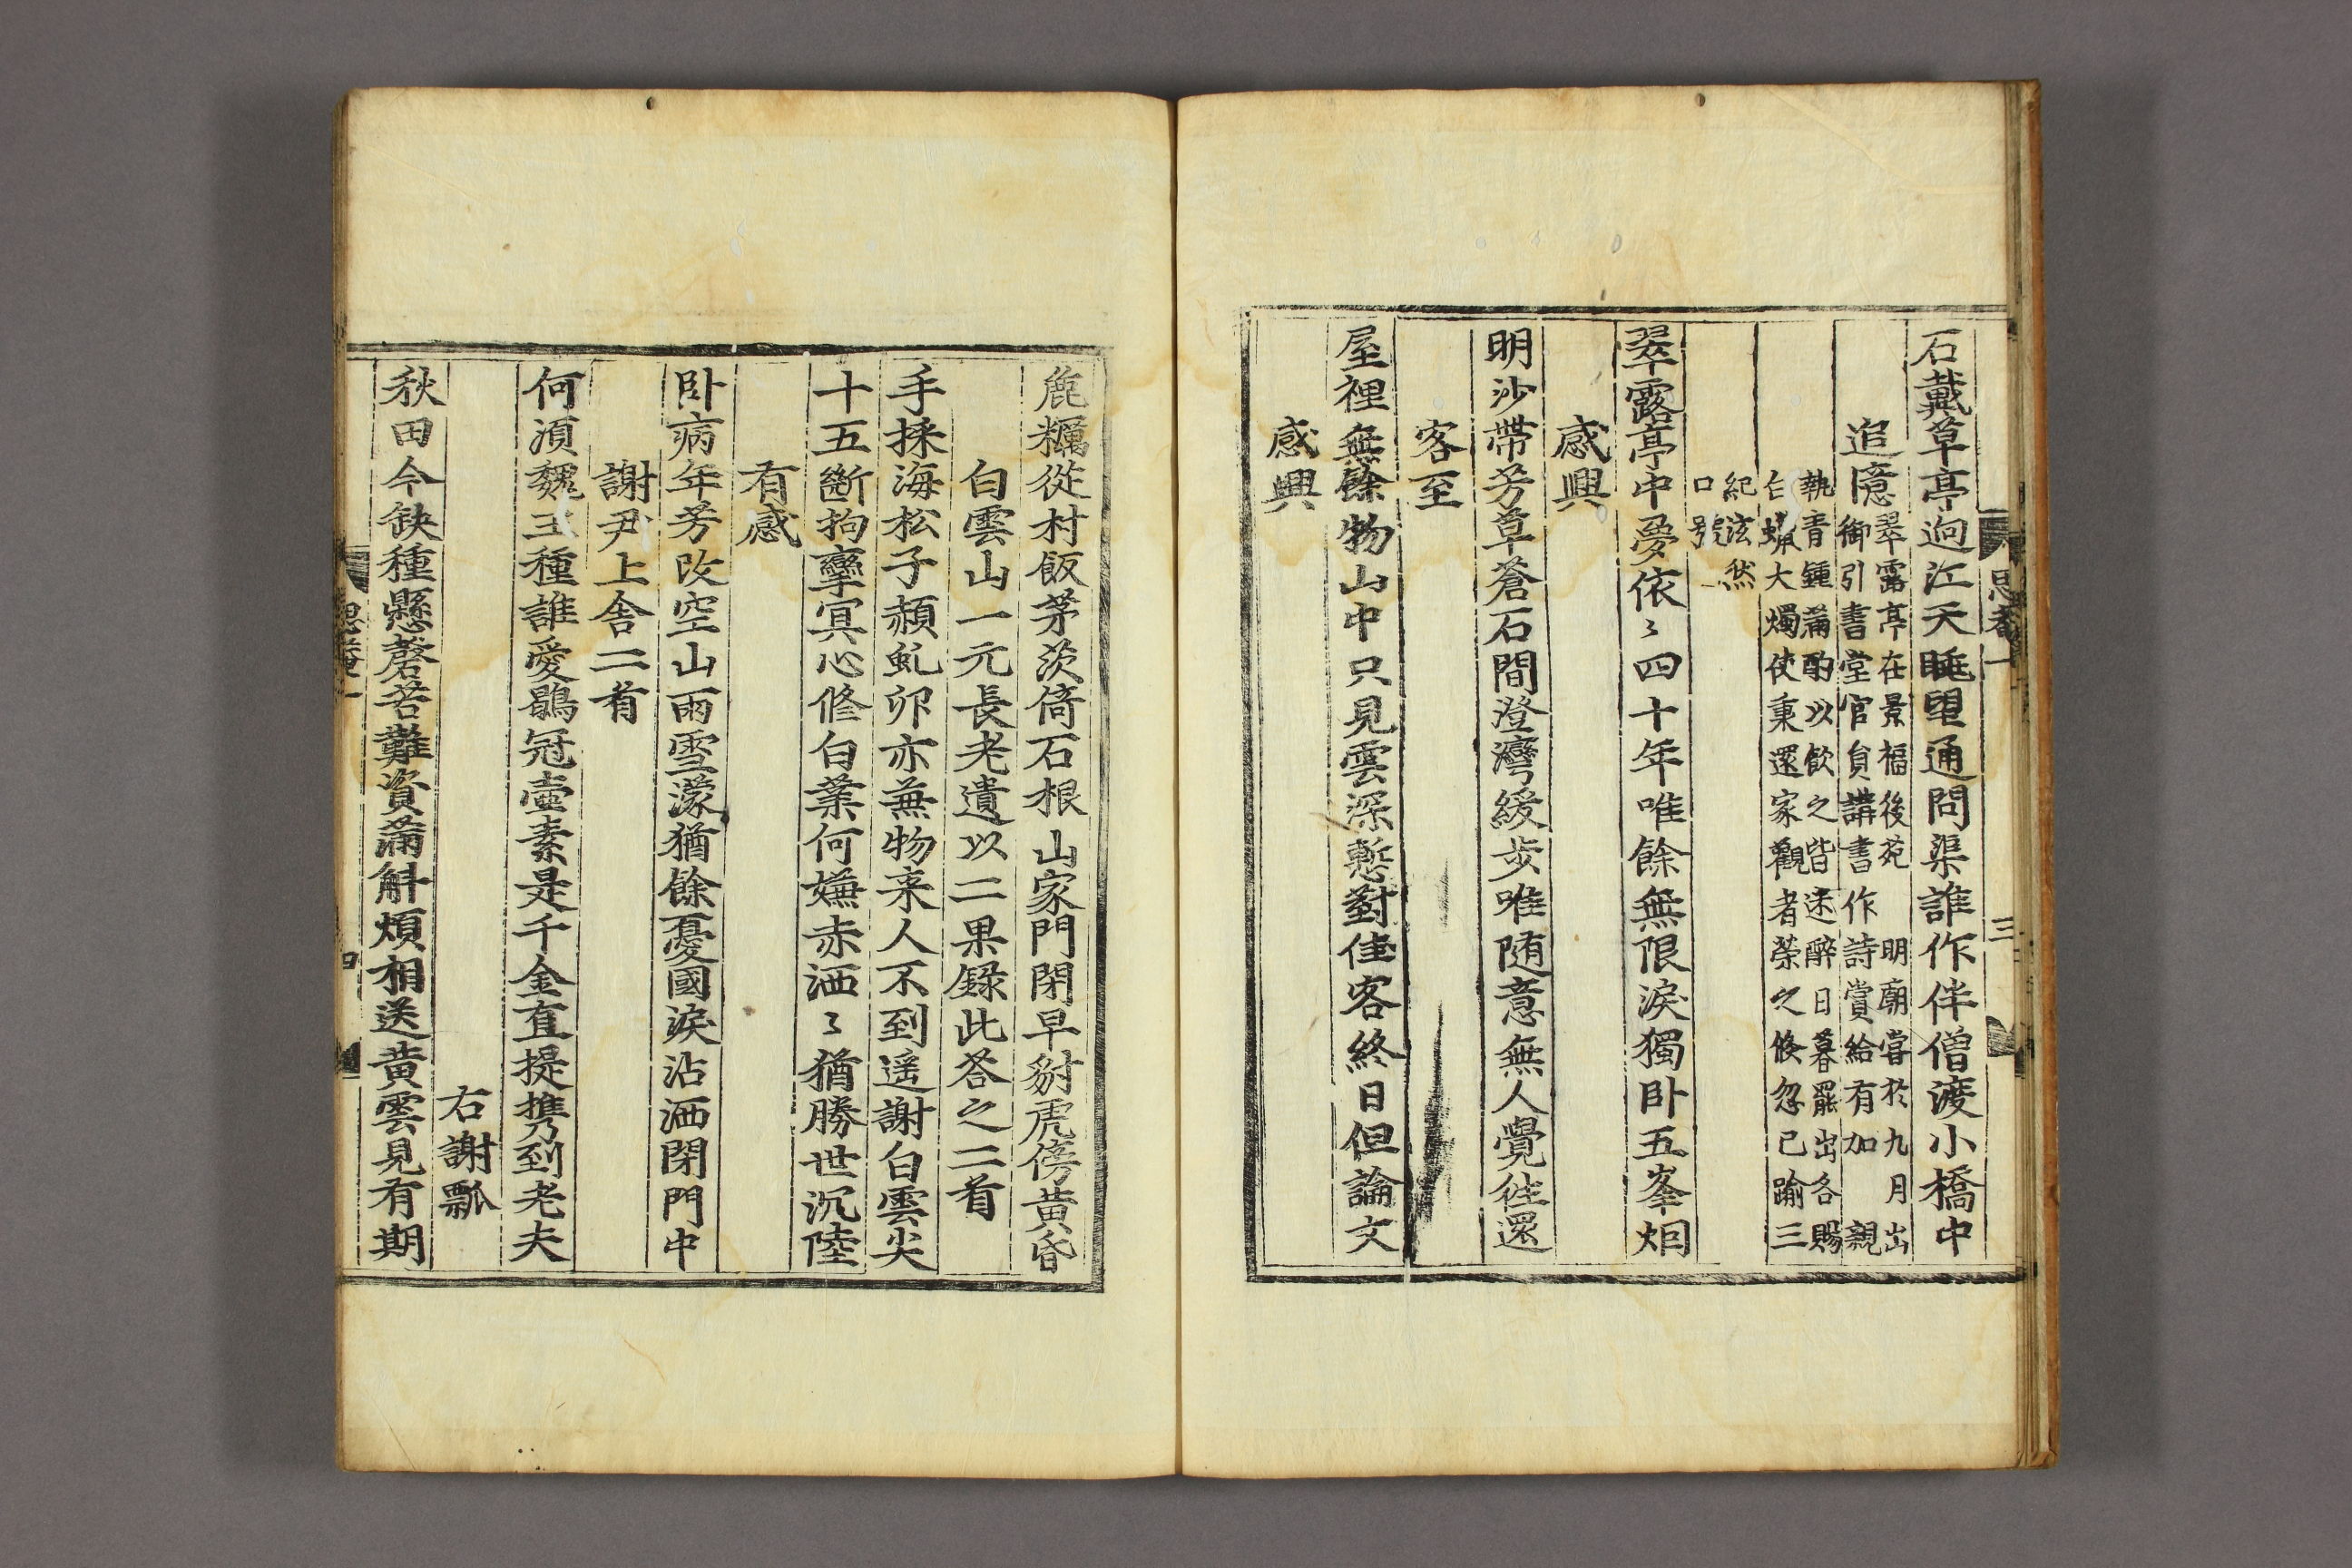 思菴一 三
石戴草亭迥江天眺望通問渠誰作伴僧渡小橋中
追憶 翠露亭在景福後苑 明廟嘗於九月出
御引書堂官員講書作詩賞給有加 親
執青鍾滿酌以飮之皆迷醉日暮罷出各賜
白蠟大燭使秉還家觀者榮之倏忽已踰三
紀泫然
口號
翠露亭中夢依〻四十年唯餘無限淚獨卧五峯烟
感興
明沙帶芳草蒼石間澄灣緩步唯随意無人覺徃還
客至
屋裡無餘物山中只見雲深慙對佳客終日但論文
感興
麁糲從村飯茅茨倚石根山家門閉早豺虎傍黄昏
白雲山一元長老遺以二果錄此答之二首
手採海松子頳虬卵亦兼物来人不到遥謝白雲尖
十五斷拘攣冥心修白業何嫌赤洒〻猶勝世沉陸
有感
卧病年芳改空山雨雪濛猶餘憂國淚沾洒閉門中
謝尹上舍二首
何湏魏王種誰愛鶡冠壷素是千金直提携乃到老夫
右謝瓢
秋田今缺種懸磬若難資滿斛煩相送黄雲見有期
思菴一 四